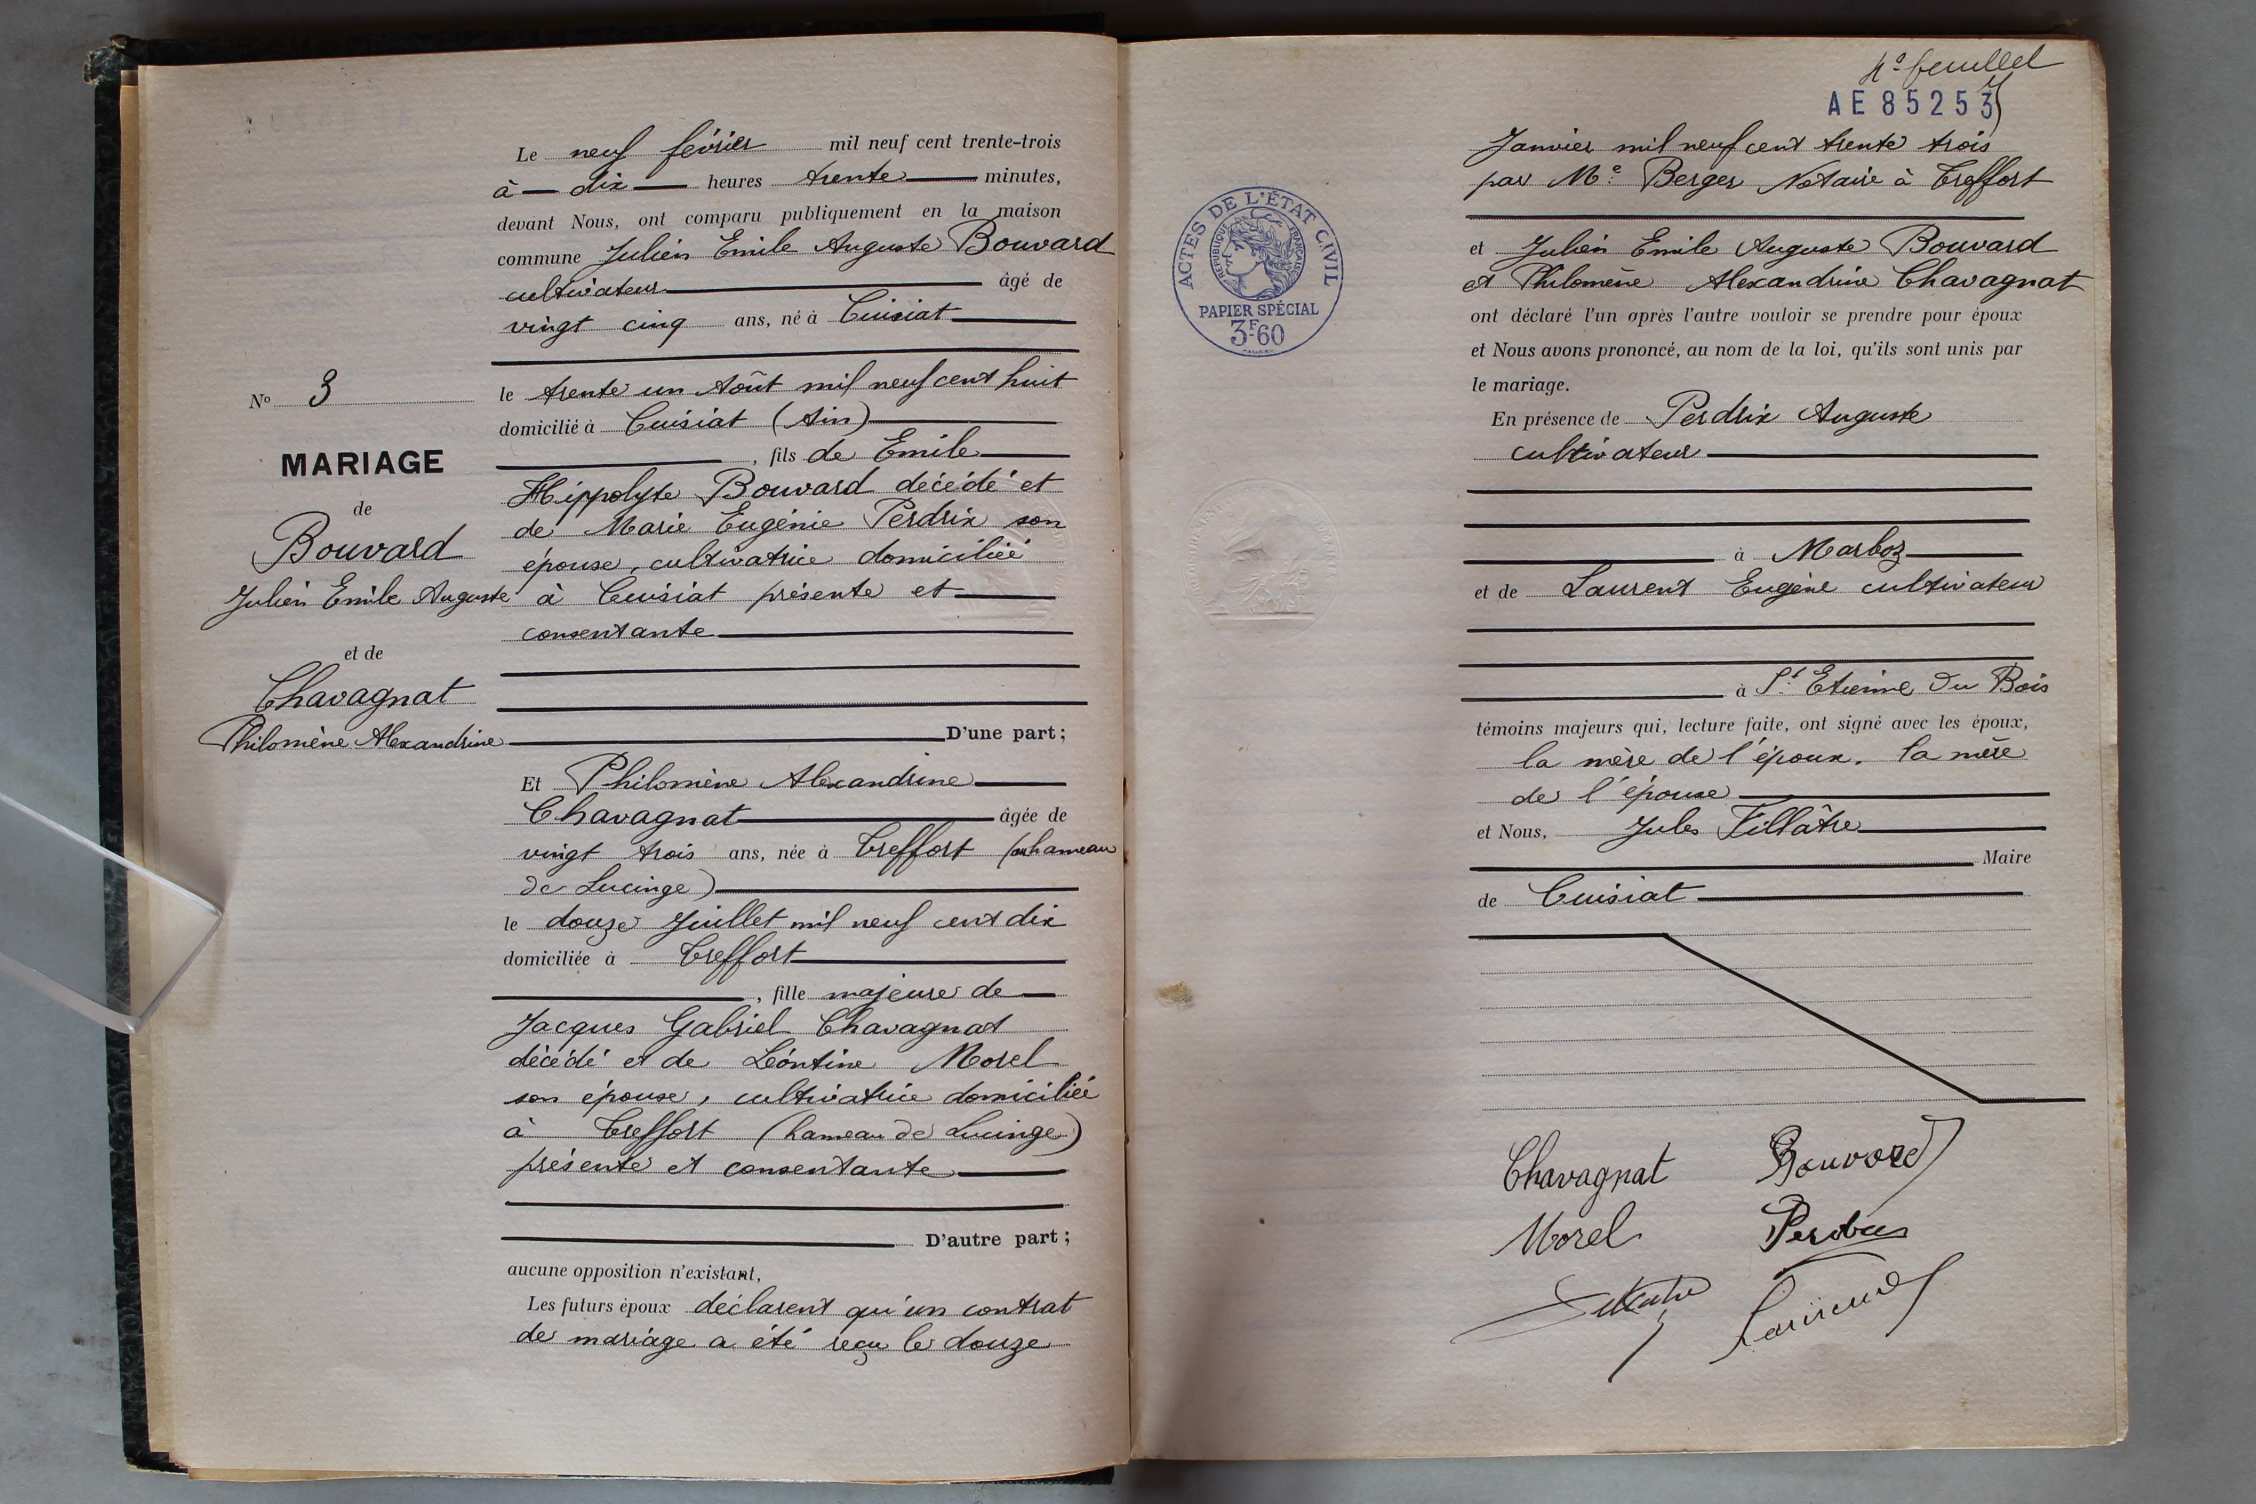 Le neuf février mil neuf cent trente-trois
à dix heures trente minutes,
devant Nous, ont comparu publiquement en la maison
commune Julien Emile Auguste Bouvard
cultivateur âgé de
vingt cinq ans, né à Cuisiat
N° 3
le trente un Août mil neuf cent huit
domicilié à Cuisiat (Ain)
MARIAGE
, fils de Emile
de
Hippolyte Bouvard décédé et
de Marie Eugénie Perdrix son
Bouvard
épouse, cultivatrice domiciliée
Julien Emile Auguste
à Cuisiat présente et
consentante
et de
Chavagnat
Philomène Alexandrine
D'une part;
Et Philomène Alexandrine
Chavagnat âgée de
vingt trois ans, née à Treffort (au hameau
de Lucinge)
le douze Juillet mil neuf cent dix
domiciliée à Treffort
, fille majeure de
Jacques Gabriel Chavagnat
décédé et de Léontine Morel
son épouse, cultivatrice domiciliée
à Treffort (hameau de Lucinge)
présente et consentante
D'autre part;
aucune opposition n'existant,
Les futurs époux déclarent qu'un contrat
de mariage a été reçu le douze
4e feuillet
AE 85253
Janvier mil neuf cent trente trois
par Me Berger Notaire à Treffort
ACTES DE L'ÉTAT CIVIL
RÉPUBLIQUE FRANÇAISE
PAPIER SPÉCIAL
3F.60
et Julien Emile Auguste Bouvard
et Philomène Alexandrine Chavagnat
ont déclaré l'un après l'autre vouloir se prendre pour époux
et Nous avons prononcé, au nom de la loi, qu'ils sont unis par
le mariage.
En présence de Perdrix Auguste
cultivateur
à Marboz
et de Laurent Eugène cultivateur
à St Etienne du Bois
témoins majeurs qui, lecture faite, ont signé avec les époux,
la mère de l'époux. la mère
de l'épouse
et Nous, Jules Fillâtre
Maire
de Cuisiat
Chavagnat Bouvard
Morel Perdrix
Laurent